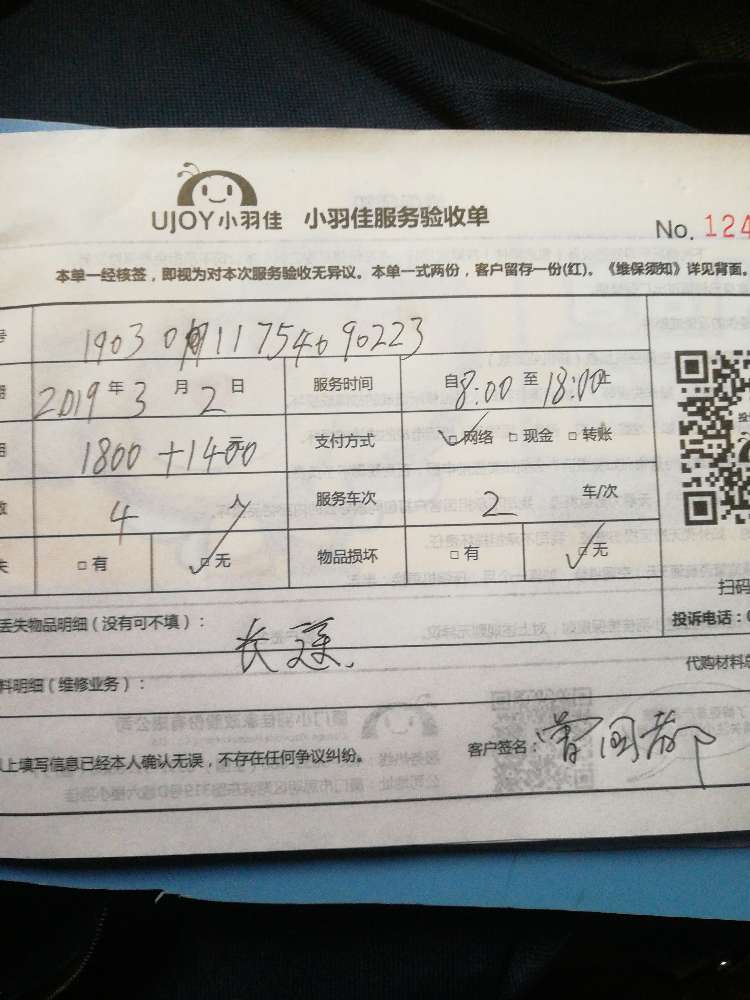 UJOY小羽佳 小羽佳服务验收单
No. 124
本单一经核签，即视为对本次服务验收无异议。本单一式两份，客户留存一份(红)。《维保须知》详见背面。
号
2019年3月2日 服务时间 自8:00至18:00止
1800+1400元 支付方式 ☑网络 □现金 □转账
数 4人 服务车次 2 车/次
失 □有 ☑无 物品损坏 □有 ☑无
扫码
丢失物品明细（没有可不填）： 投诉电话：0
长途.
料明细（维修业务）： 代购材料总
以上填写信息已经本人确认无误，不存在任何争议纠纷。 客户签名：